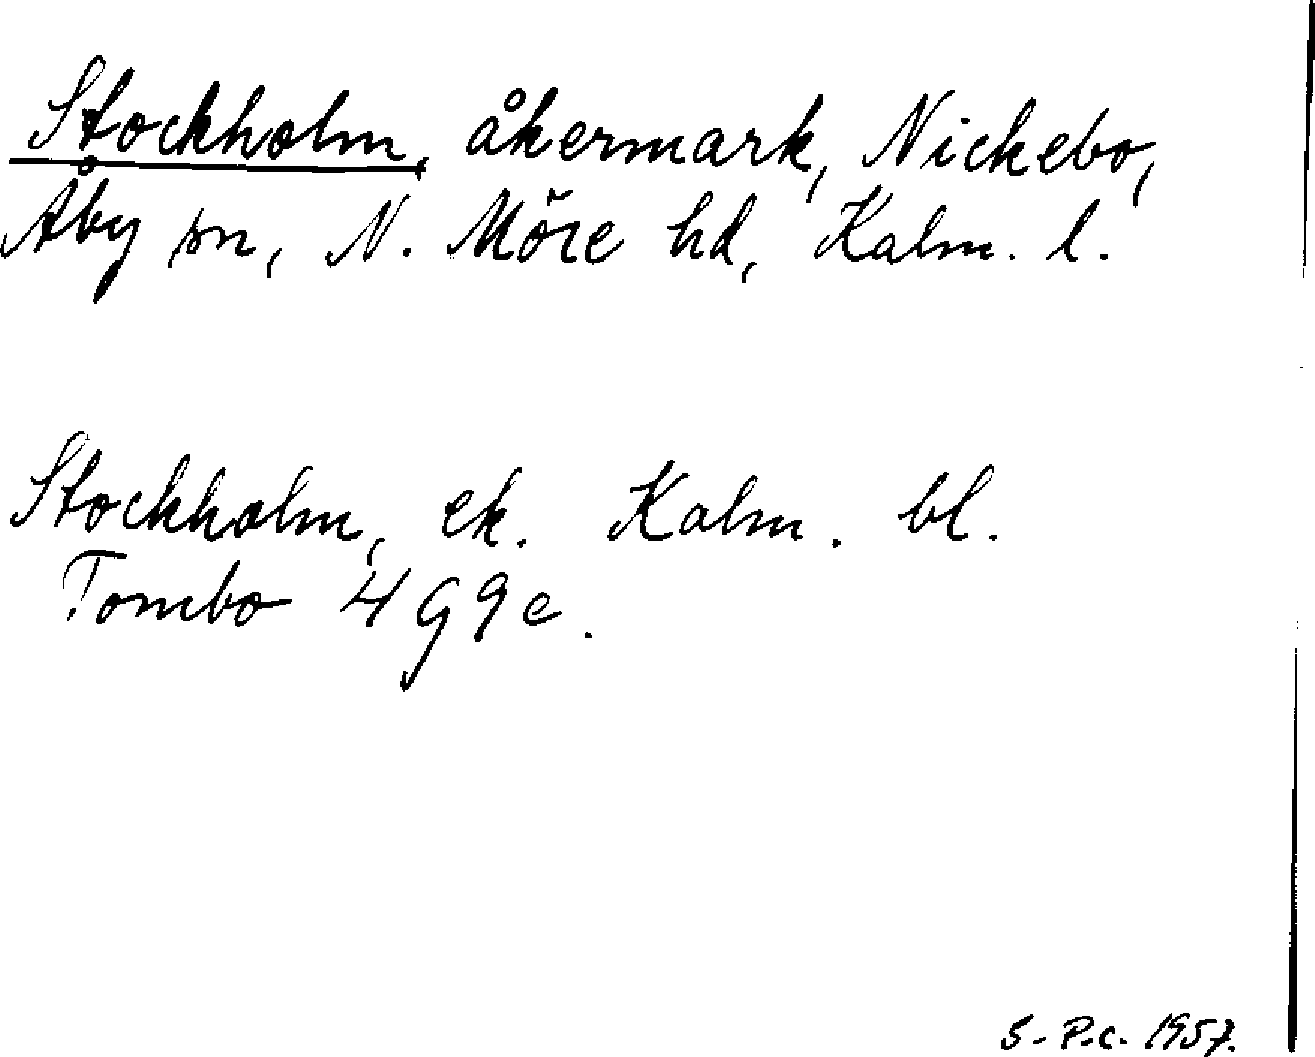 Stockholm, åkermark, Nickebo,
Åby sn, N. Möre hd, Kalm. l.
Stockholm, ek. Kalm. bl.
Tombo 4 G 9 e.
S-P.C. 1957.